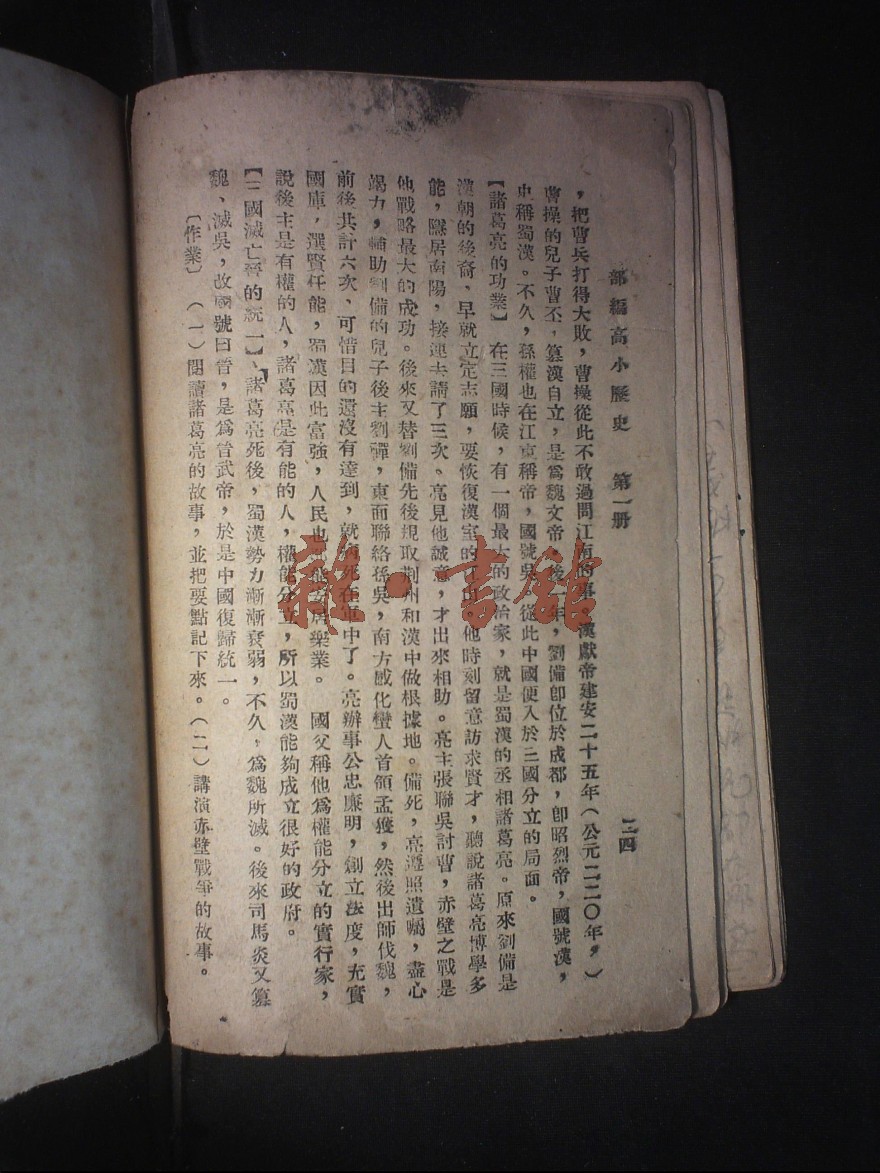 部編高小歷史 第一册 二四
，把曹兵打得大敗，曹操從此不敢過問江南的事。漢獻帝建安二十五年（公元二二〇年，）
曹操的兒子曹丕，篡漢自立，是爲魏文帝。後一年，劉備卽位於成都，卽昭烈帝，國號漢，
史稱蜀漢。不久，孫權也在江東稱帝，國號吳。從此中國便入於三國分立的局面。
【諸葛亮的功業】 在三國時候，有一個最大的政治家，就是蜀漢的丞相諸葛亮。原來劉備是
漢朝的後裔，早就立定志願，要恢復漢室的 他時刻留意訪求賢才，聽說諸葛亮博學多
能，隱居南陽，接連去請了三次。亮見他誠意，才出來相助。亮主張聯吳討曹，赤壁之戰是
他戰略最大的成功。後來又替劉備先後規取荆州和漢中做根據地。備死，亮遵照遺囑，盡心
竭力，輔助劉備的兒子後主劉禪，東面聯絡孫吳，南方感化蠻人首領孟獲，然後出師伐魏，
前後共計六次，可惜目的還沒有達到，就病死在軍中了。亮辦事公忠廉明，創立法度，充實
國庫，選賢任能，蜀漢因此富強，人民也 安居樂業。 國父稱他爲權能分立的實行家，
說後主是有權的人，諸葛亮是有能的人，權能分立，所以蜀漢能夠成立很好的政府。
【三國滅亡晉的統一】、諸葛亮死後，蜀漢勢力漸漸衰弱，不久，爲魏所滅。後來司馬炎又篡
魏、滅吳，改國號曰晉，是爲晉武帝，於是中國復歸統一。
〔作業〕 （一）閱讀諸葛亮的故事，並把要點記下來。（二）講演赤壁戰爭的故事。
雜·書館